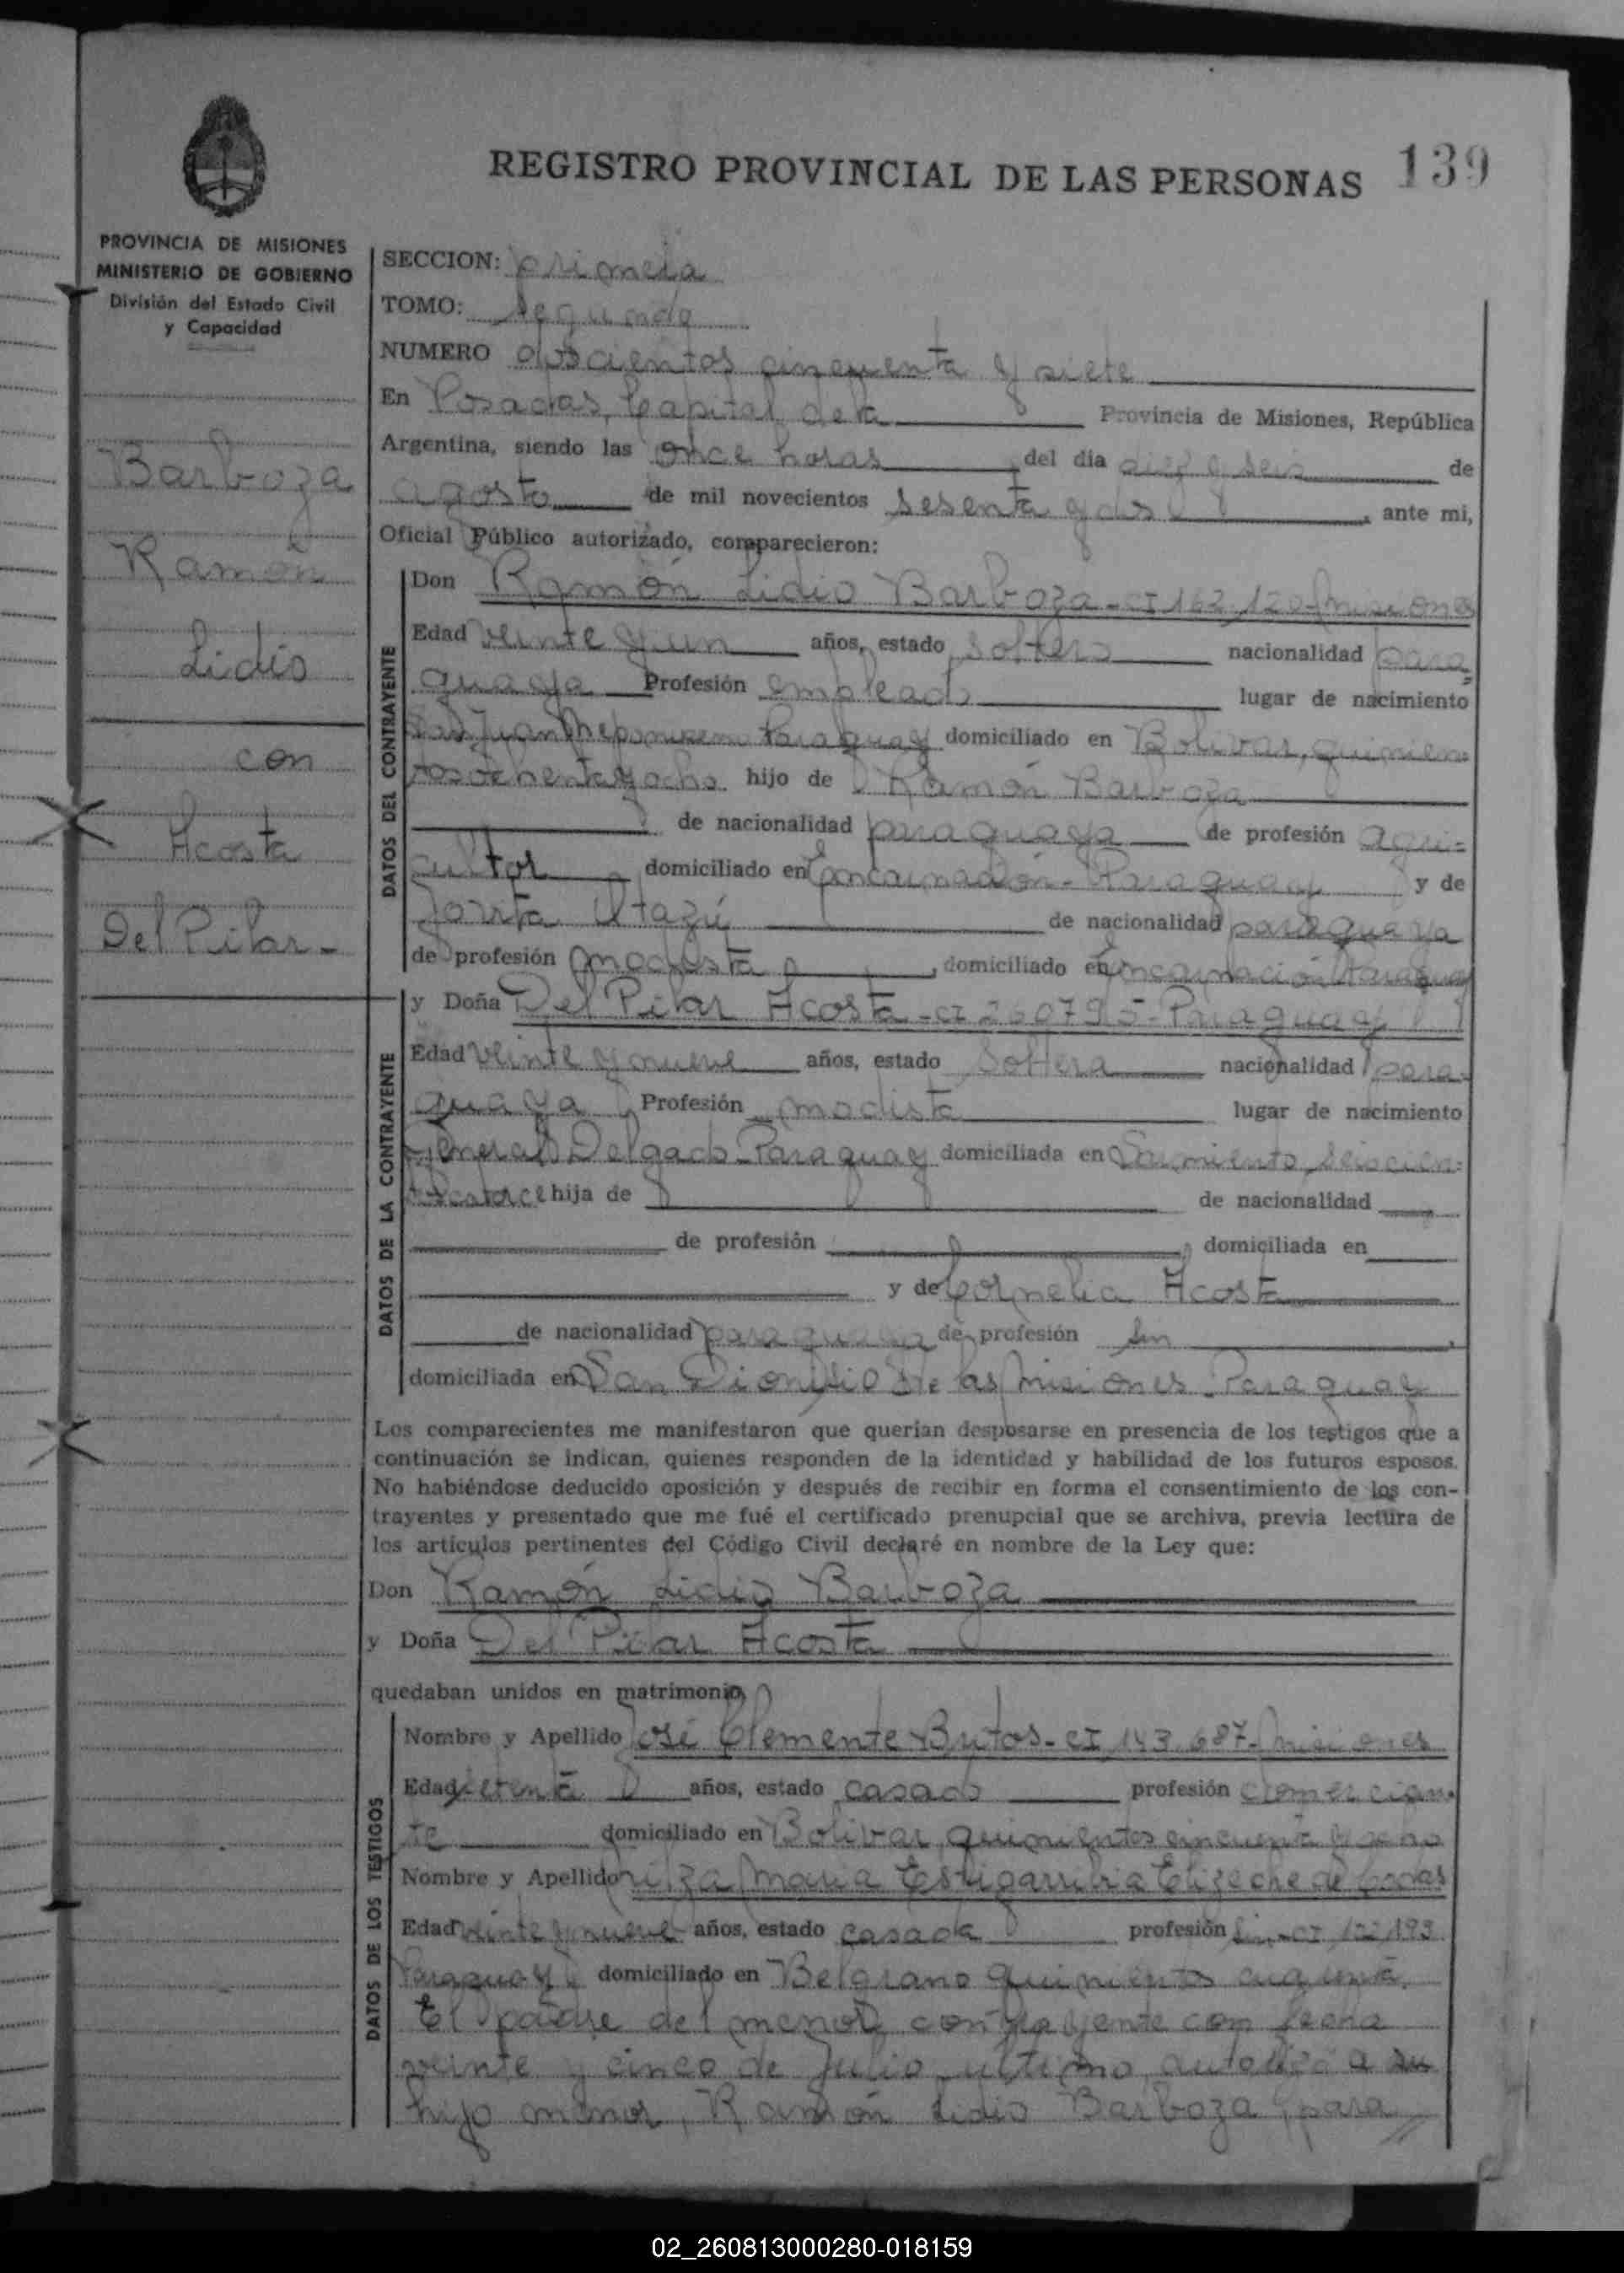 REGISTRO PROVINCIAL DE LAS PERSONAS 139
PROVINCIA DE MISIONES
MINISTERIO DE GOBIERNO
División del Estado Civil
y Capacidad
Barboza
Ramón
Lidio
con
Acosta
Del Pilar-
SECCION: primera
TOMO: segundo
NUMERO doscientos cincuenta y siete
En Posadas, Capital de la Provincia de Misiones, República
Argentina, siendo las once horas del dia diez y seis de
agosto de mil novecientos sesenta y dos, ante mi,
Oficial Público autorizado, comparecieron:
DATOS DEL CONTRAYENTE
Don Ramón Lidio Barboza-CI 162,120-Misiones
Edad veinte y un años, estado soltero nacionalidad para-
guaya Profesión empleado lugar de nacimiento
San Juan Nepomuceno Paraguay domiciliado en Bolívar, quinien-
tos ochenta y ocho hijo de Ramón Barboza
de nacionalidad paraguaya de profesión agri-
cultor domiciliado en Encarnación-Paraguay y de
de nacionalidad paraguaya
de profesión modista, domiciliado en Encarnación Paraguay
DATOS DE LA CONTRAYENTE
y Doña Del Pilar Acosta-CI 260795-Paraguay
Edad veinte y nueve años, estado soltera nacionalidad para-
guaya Profesión modista lugar de nacimiento
General Delgado-Paraguay domiciliada en Sarmiento, seiscien-
tos catorce hija de de nacionalidad
de profesión, domiciliada en
y de Cornelia Acosta
de nacionalidad paraguaya de profesión sin,
domiciliada en San Dionisio de las Misiones-Paraguay
Los comparecientes me manifestaron que querían desposarse en presencia de los testigos que a
continuación se indican, quienes responden de la identidad y habilidad de los futuros esposos.
No habiéndose deducido oposición y después de recibir en forma el consentimiento de los con-
trayentes y presentado que me fué el certificado prenupcial que se archiva, previa lectura de
los artículos pertinentes del Código Civil declaré en nombre de la Ley que:
Don Ramón Lidio Barboza
y Doña Del Pilar Acosta
quedaban unidos en matrimonio,
DATOS DE LOS TESTIGOS
Nombre y Apellido José Clemente Britos-CI 143.687-Misiones
Edad setenta años, estado casado profesión comercian-
te domiciliado en Bolívar, quinientos cincuenta y ocho
Nombre y Apellido María Estigarribia de
Edad veinte y nueve años, estado casada profesión sin-CI 122,193
Paraguay domiciliado en Belgrano quinientos cuarenta.
El padre del menor contrayente con fecha
veinte y cinco de julio último, autorizó a su
hijo menor, Ramón Lidio Barboza, para//
02_260813000280-018159